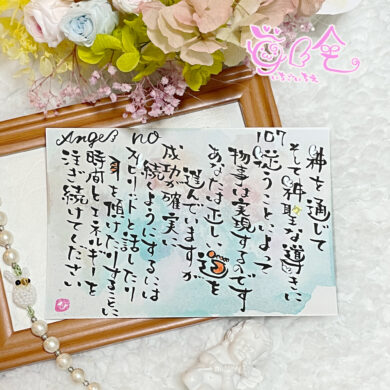 Angel NO
107
神を通じて
そして神聖な導きに
従うことによって
物事は実現するのです
あなたは正しい道を
選んでいますが
成功が確実に
続くようにするには
スピリットと話したり
耳を傾けたりすることに
時間とエネルギーを
注ぎ続けてください